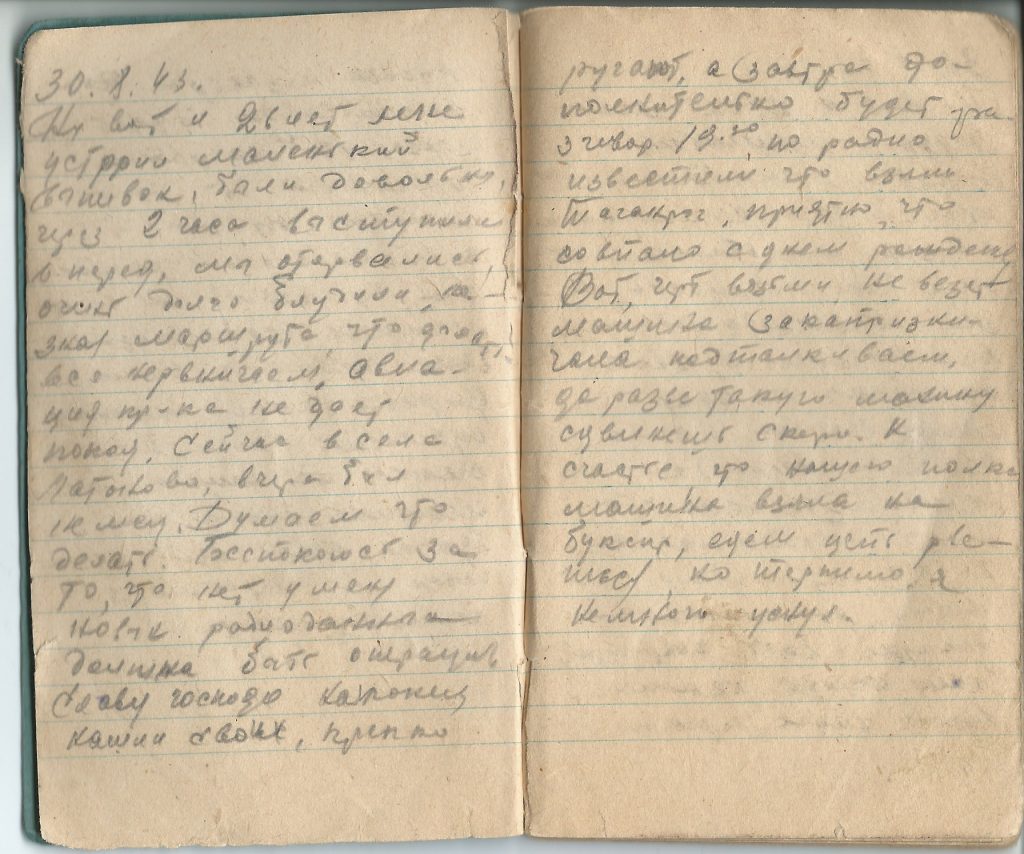 30.8.43.
Ну вот и 26 лет мне
устроил маленький
выпивок, были довольны,
через 2 часа выступили
вперед, мы оторвались,
очень долго блудили, не
зная маршрута, что делать
все нервничаем, авиа-
ция пр-ка не дает
покоя, Сейчас в селе
Латоново, вчера был
немец. Думаем что
делать. Беспокоюсь за
то, что нет у меня
новых радиоданных
должна быть операция
Славу господу наконец
нашли своих, крепко
ругают, а завтра до-
полнительно будет раз-
говор 19.30 по радио
известили что взяли
Таганрог, приятно что
совпало с днем рождения
Вот, черт возьми не везет
машина закапризни-
чала подталкиваем,
да разве такую махину
сдвинешь скоро. К
счастье что нашего полка
машина взяла на
буксир, едем цепь рве-
ться, но терпимо, я
немного уснул.